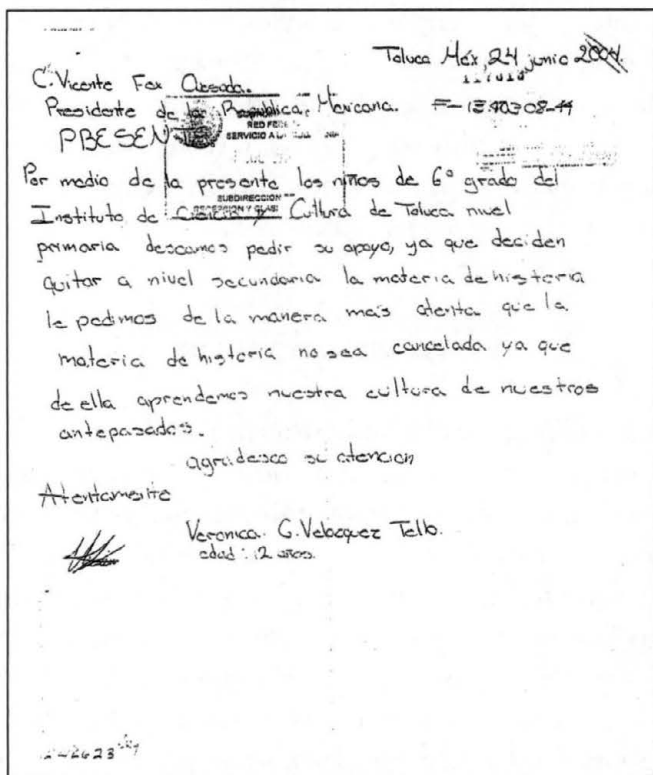 Toluca Méx, 24 junio 2004.
C. Vicente Fox Quesada.
Presidente de la Republica Mexicana.
PRESENTE
RED FEDE
SERVICIO A LA
SUBDIRECCION
RECEPCION Y CLASI
Por medio de la presente los niños de 6º grado del
Instituto de Ciencia y Cultura de Toluca nivel
primaria deseamos pedir su apoyo, ya que deciden
quitar a nivel secundaria la materia de historia
le pedimos de la manera más atenta que la
materia de historia no sea cancelada ya que
de ella aprendemos nuestra cultura de nuestros
antepasados.
agradesco su atencion
Atentamente
Veronica G. Velazquez Tello.
edad: 12 años.